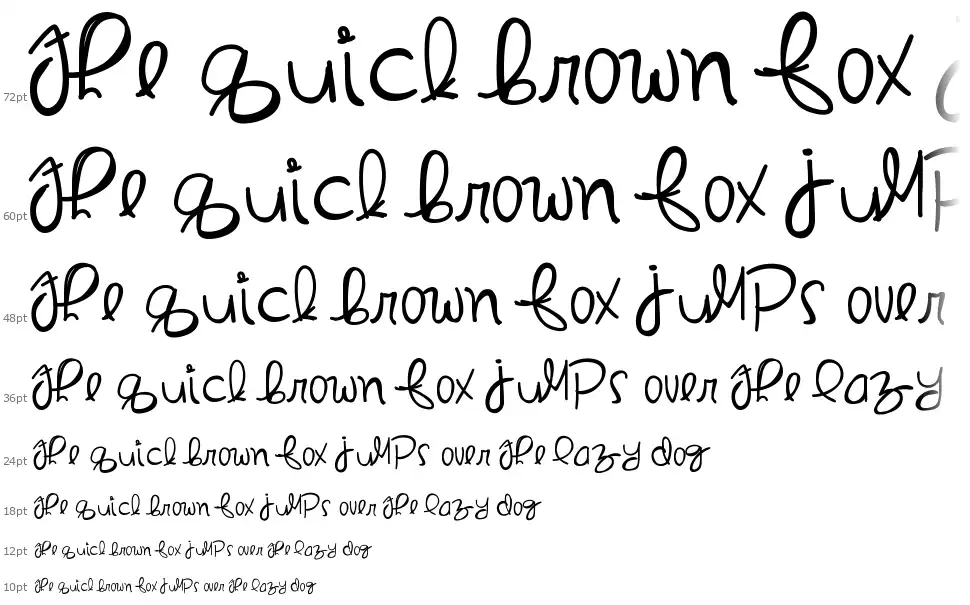 72pt the quick brown fox
60pt the quick brown fox jump
48pt the quick brown fox jumps over
36pt the quick brown fox jumps over the lazy
24pt the quick brown fox jumps over the lazy dog
18pt the quick brown fox jumps over the lazy dog
12pt the quick brown fox jumps over the lazy dog
10pt the quick brown fox jumps over the lazy dog